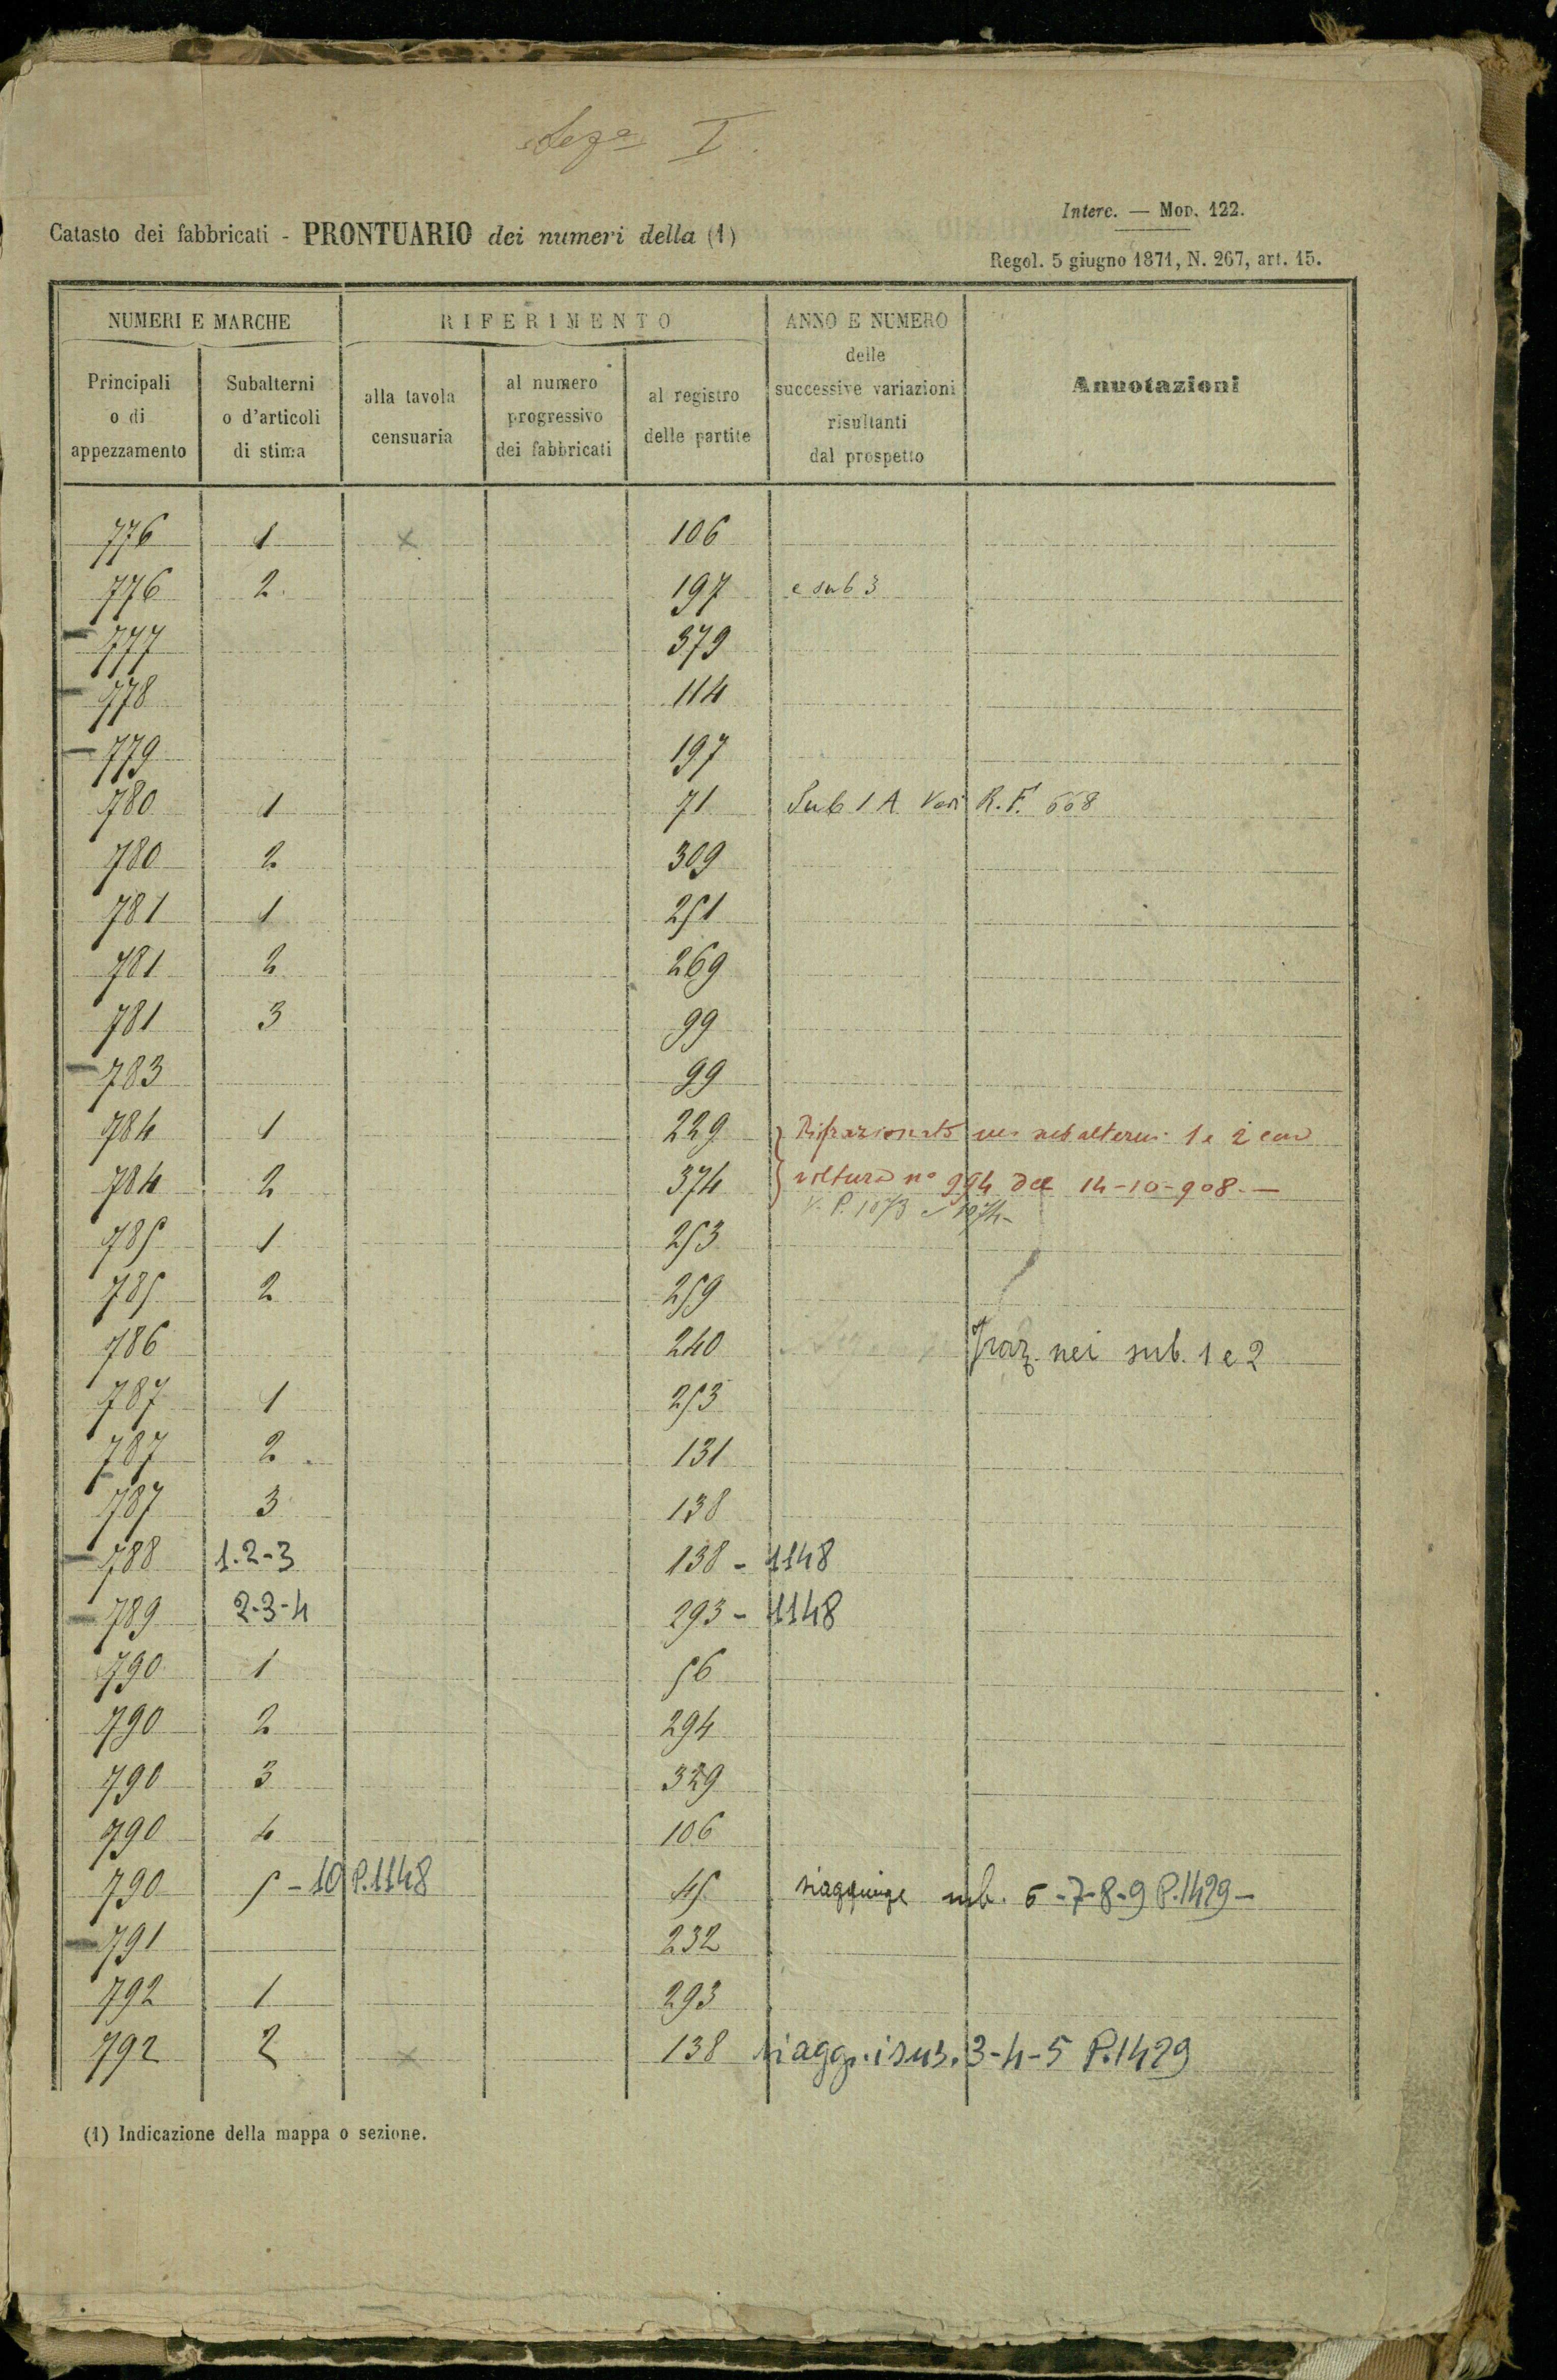 Seze I.
Interc. — Mod. 122.
Catasto dei fabbricati - PRONTUARIO dei numeri della (1)
Regol. 5 giugno 1871, N. 267, art. 15.
NUMERI E MARCHE RIFERIMENTO ANNO E NUMERO delle successive variazioni risultanti dal prospetto Annotazioni
Principali o di appezzamento Subalterni o d'articoli di stima alla tavola censuaria al numero progressivo dei fabbricati al registro delle partite
776 1 x 106
776 2 197 e sub 3
777 379
778 114
779 197
780 1 71 Sub 1 A Vari R.F. 668
780 2 309
781 1 251
781 2 269
781 3 99
783 99
784 1 229 Rifrazionato nei subalterni 1 e 2 con
784 2 374 voltura nº 994 del 14-10-908.—
V. P. 1073 e 1074-
785 1 253
785 2 259
786 240 Fraz. nei sub. 1 e 2
787 1 253
787 2 131
787 3 138
788 1.2-3 138 - 1148
789 2-3-4 293 - 1148
790 1 56
790 2 294
790 3 329
790 4 106
790 5 - 10 P.1148 45 si aggiunge sub. 6-7-8-9 P.1429-
791 232
792 1 293
792 2 x 138 si agg. 3-4-5 P.1429
(1) Indicazione della mappa o sezione.